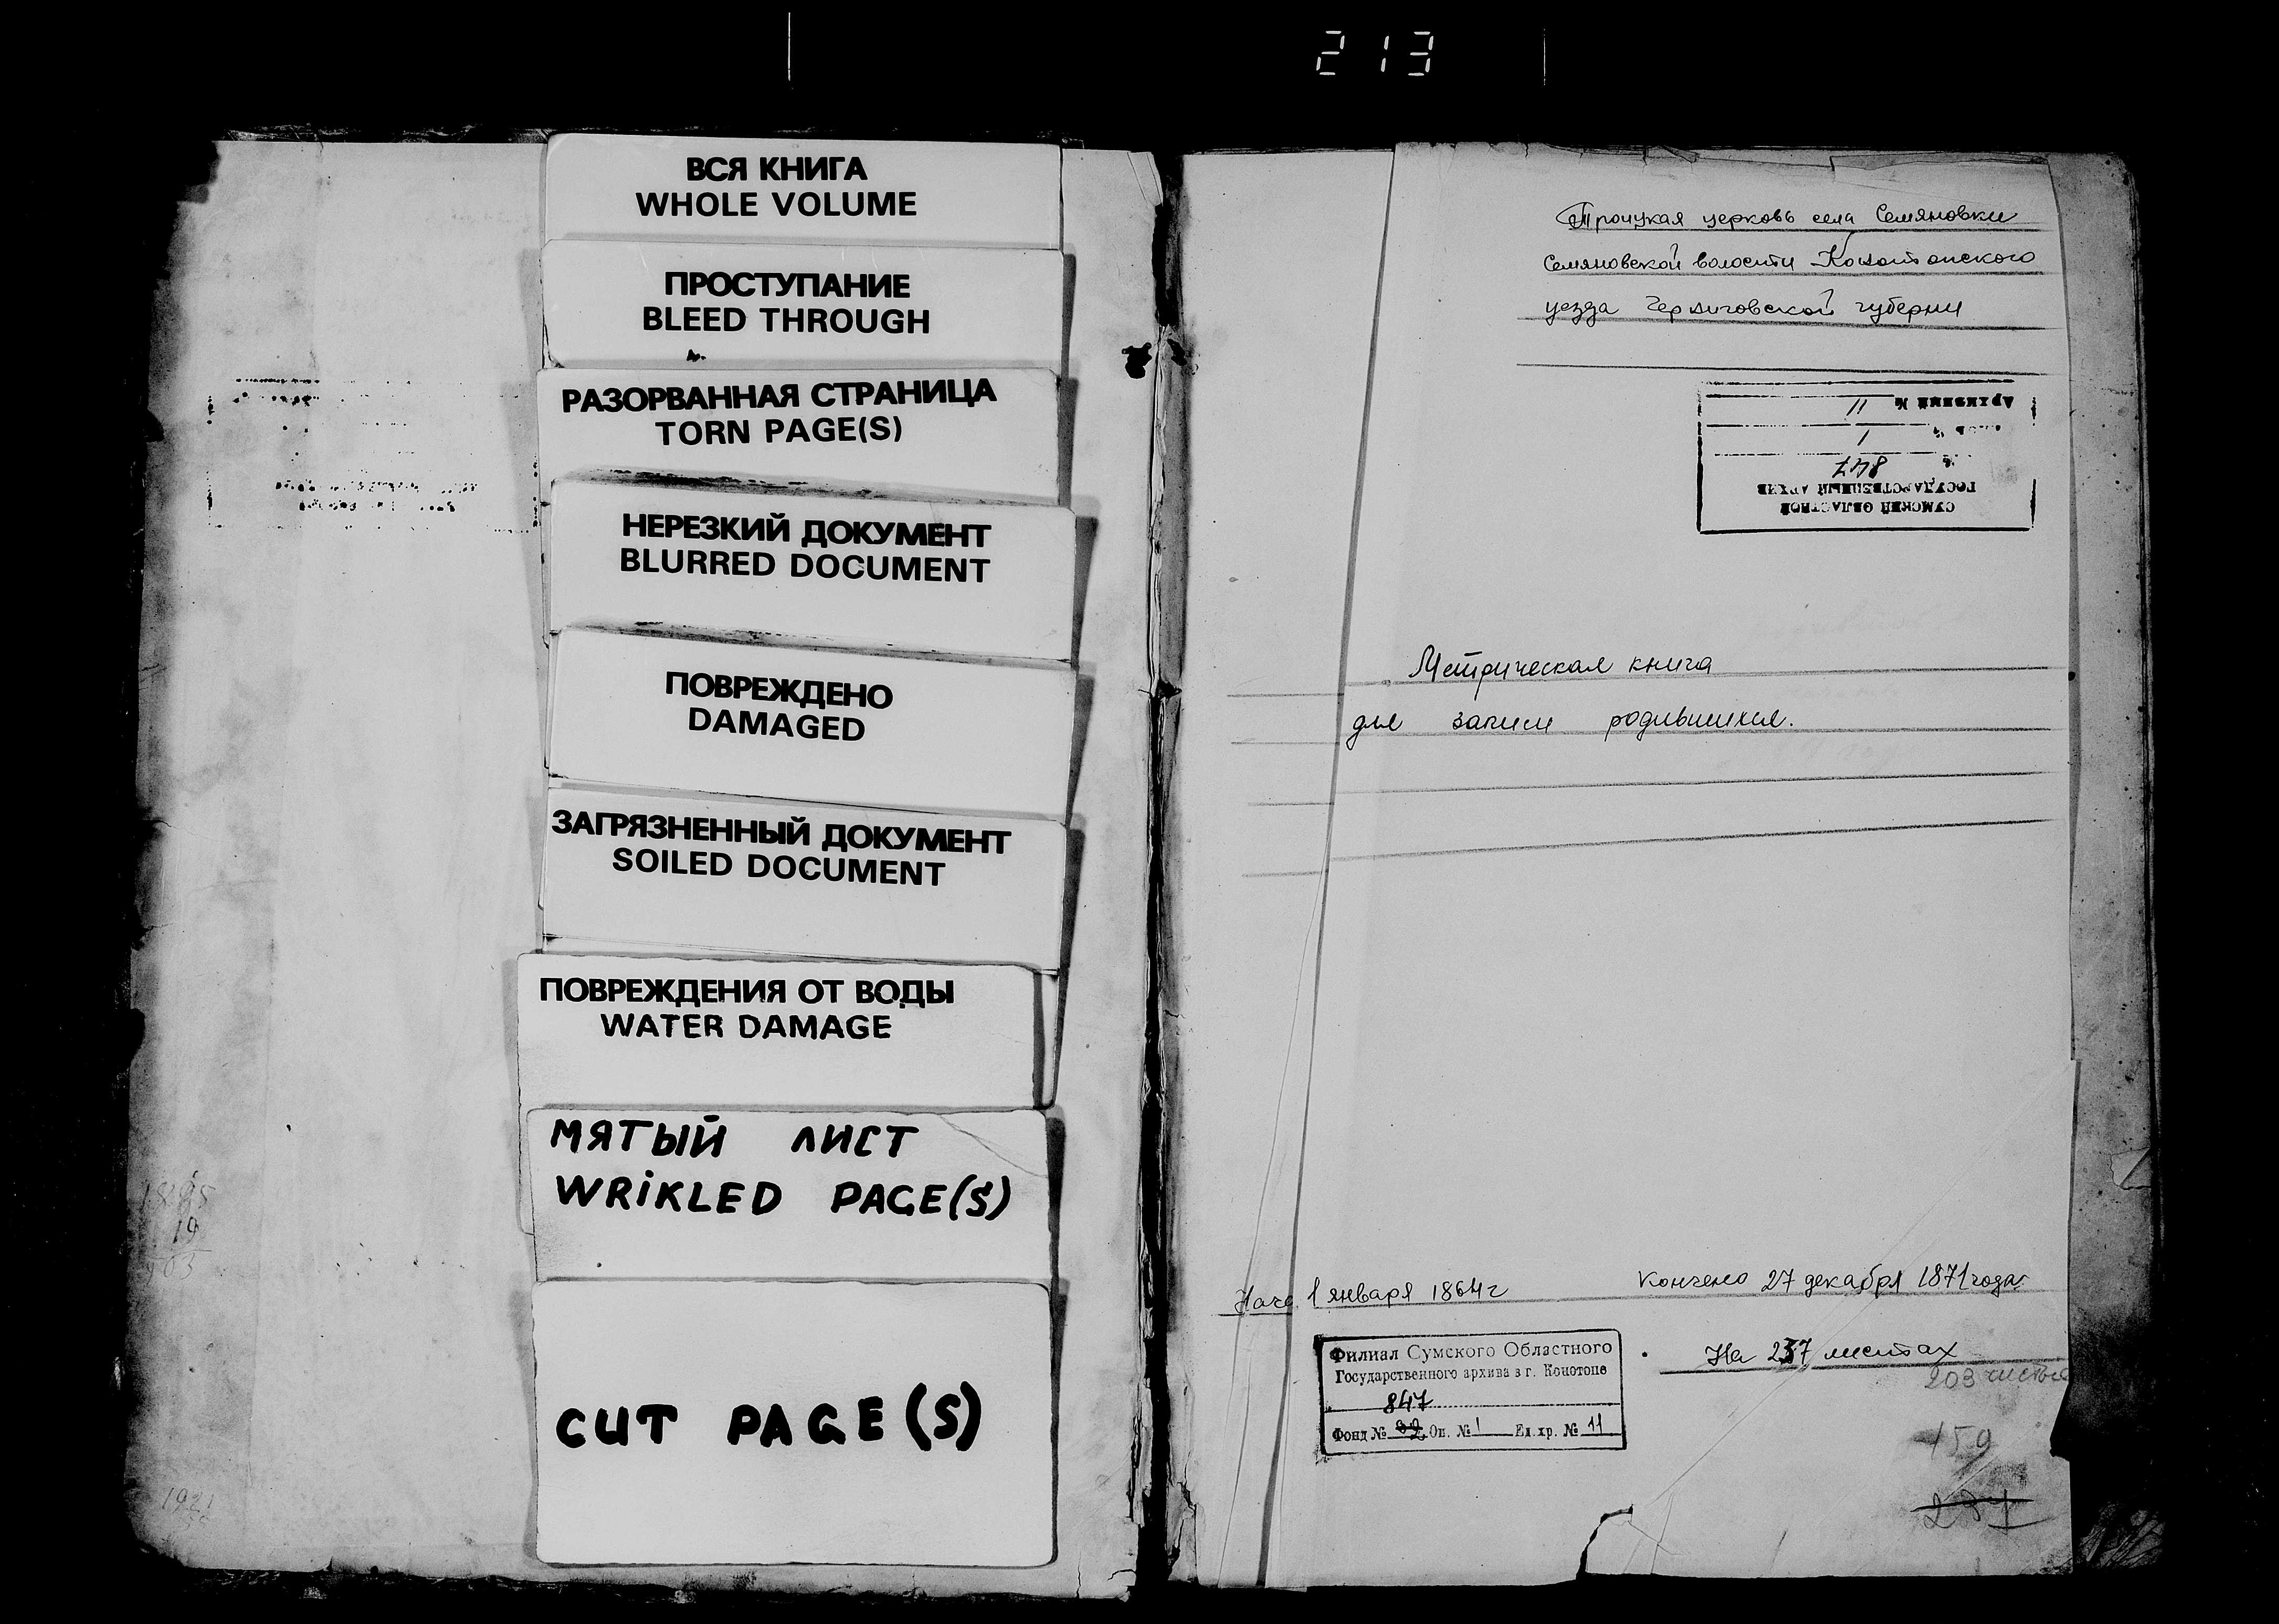 213
ВСЯ КНИГА
WHOLE VOLUME
ПРОСТУПАНИЕ
BLEED THROUGH
РАЗОРВАННАЯ СТРАНИЦА
TORN PAGE(S)
НЕРЕЗКИЙ ДОКУМЕНТ
BLURRED DOCUMENT
ПОВРЕЖДЕНО
DAMAGED
ЗАГРЯЗНЕННЫЙ ДОКУМЕНТ
SOILED DOCUMENT
ПОВРЕЖДЕНИЯ ОТ ВОДЫ
WATER DAMAGE
МЯТЫЙ ЛИСТ
WRiKLED PAGE(S)
CUT PAGE(S)
19
1921
Троицкая церковь села Семяновки
Семяновской волости Конотопского
уезда Черниговской губерни
СУМСКИЙ ОБЛАСТНОЙ
ГОСУДАРСТВЕННЫЙ АРХИВ
847
1
Архивный № 11
Метрическая книга
для записи родившихся.
Нача 1 января 1864 г
кончено 27 декабря 1871 года
На 237 листах
203 листа
Филиал Сумского Областного
Государственного архива в г. Конотопе
847
Фонд № Оп. № 1 Ед. хр. № 11
159